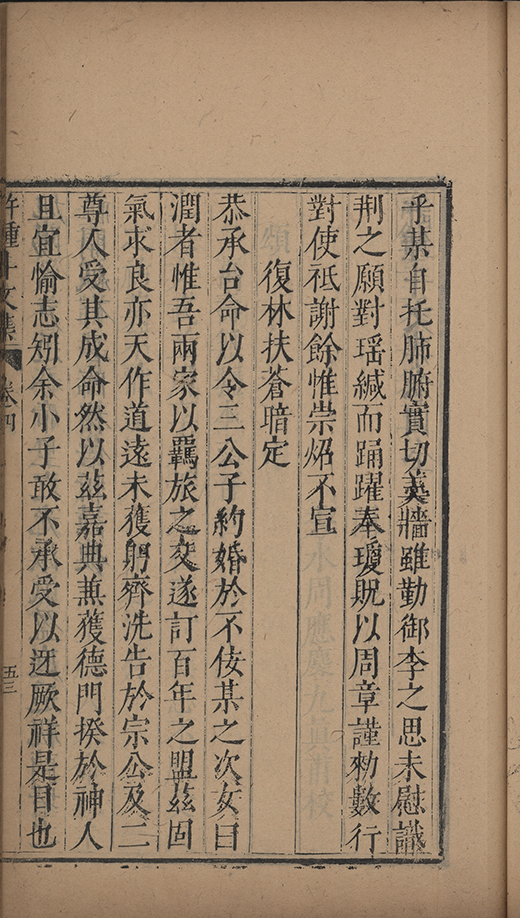 乎某自托肺腑實切羹牆雖勤御李之思未慰識
荆之願對瑶緘而踊躍奉瓊貺以周章謹勑數行
對使祗謝餘惟崇炤不宣
復林扶蒼暗定
恭承台命以令三公子約婚於不佞某之次女曰
潤者惟吾兩家以羈旅之交遂訂百年之盟兹固
氣求良亦天作道遠未獲躬齊洗告於宗公及二
尊人受其成命然以兹嘉典兼獲德門揆於神人
且宜愉志矧余小子敢不承受以迓厥祥是日也
許鍾斗文集 卷四 五三